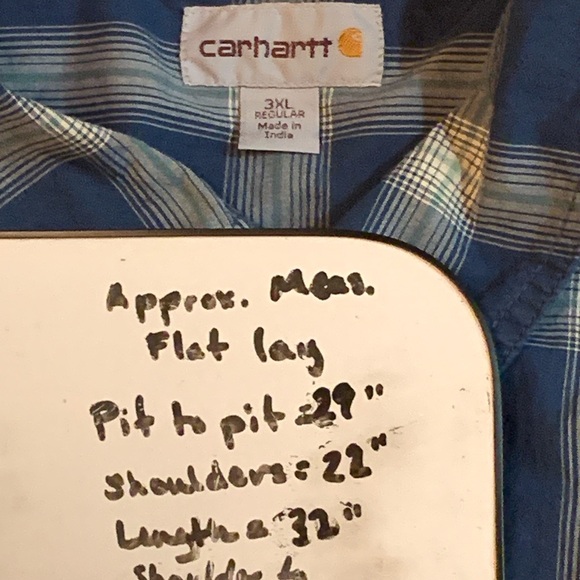 carhartt
3XL
REGULAR
Made in
India
Approx. Meas.
Flat lay
Pit to pit = 29"
Shoulders = 22"
Length = 32"
Shoulder to